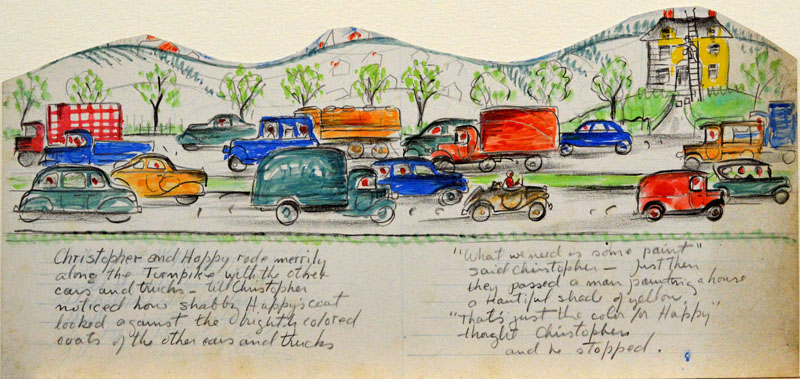 Christopher and Happy rode merrily
along the Turnpike with the other
cars and trucks – till Christopher
noticed how shabby Happy's coat
looked against the brightly colored
coats of the other cars and trucks
"What we need is some paint"
said Christopher – Just then
they passed a man painting a house
a beautiful shade of yellow,
"That's just the color for Happy"
thought Christopher
and he stopped.